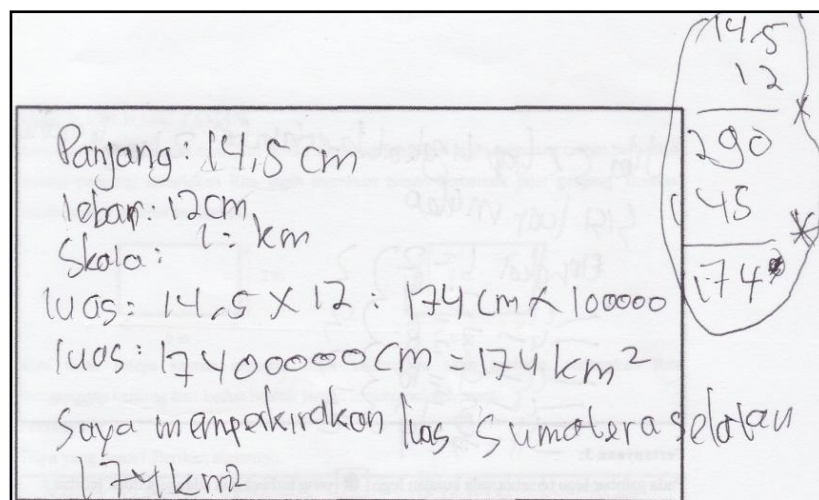 Panjang: 14,5 cm
lebar: 12 cm
Skala: 1 = km
luas: 14,5 x 12 = 174 cm x 100000
luas: 17400000 cm = 174 km²
Saya memperkirakan luas Sumatera selatan
174 km²
14,5
12
x
290
145
174